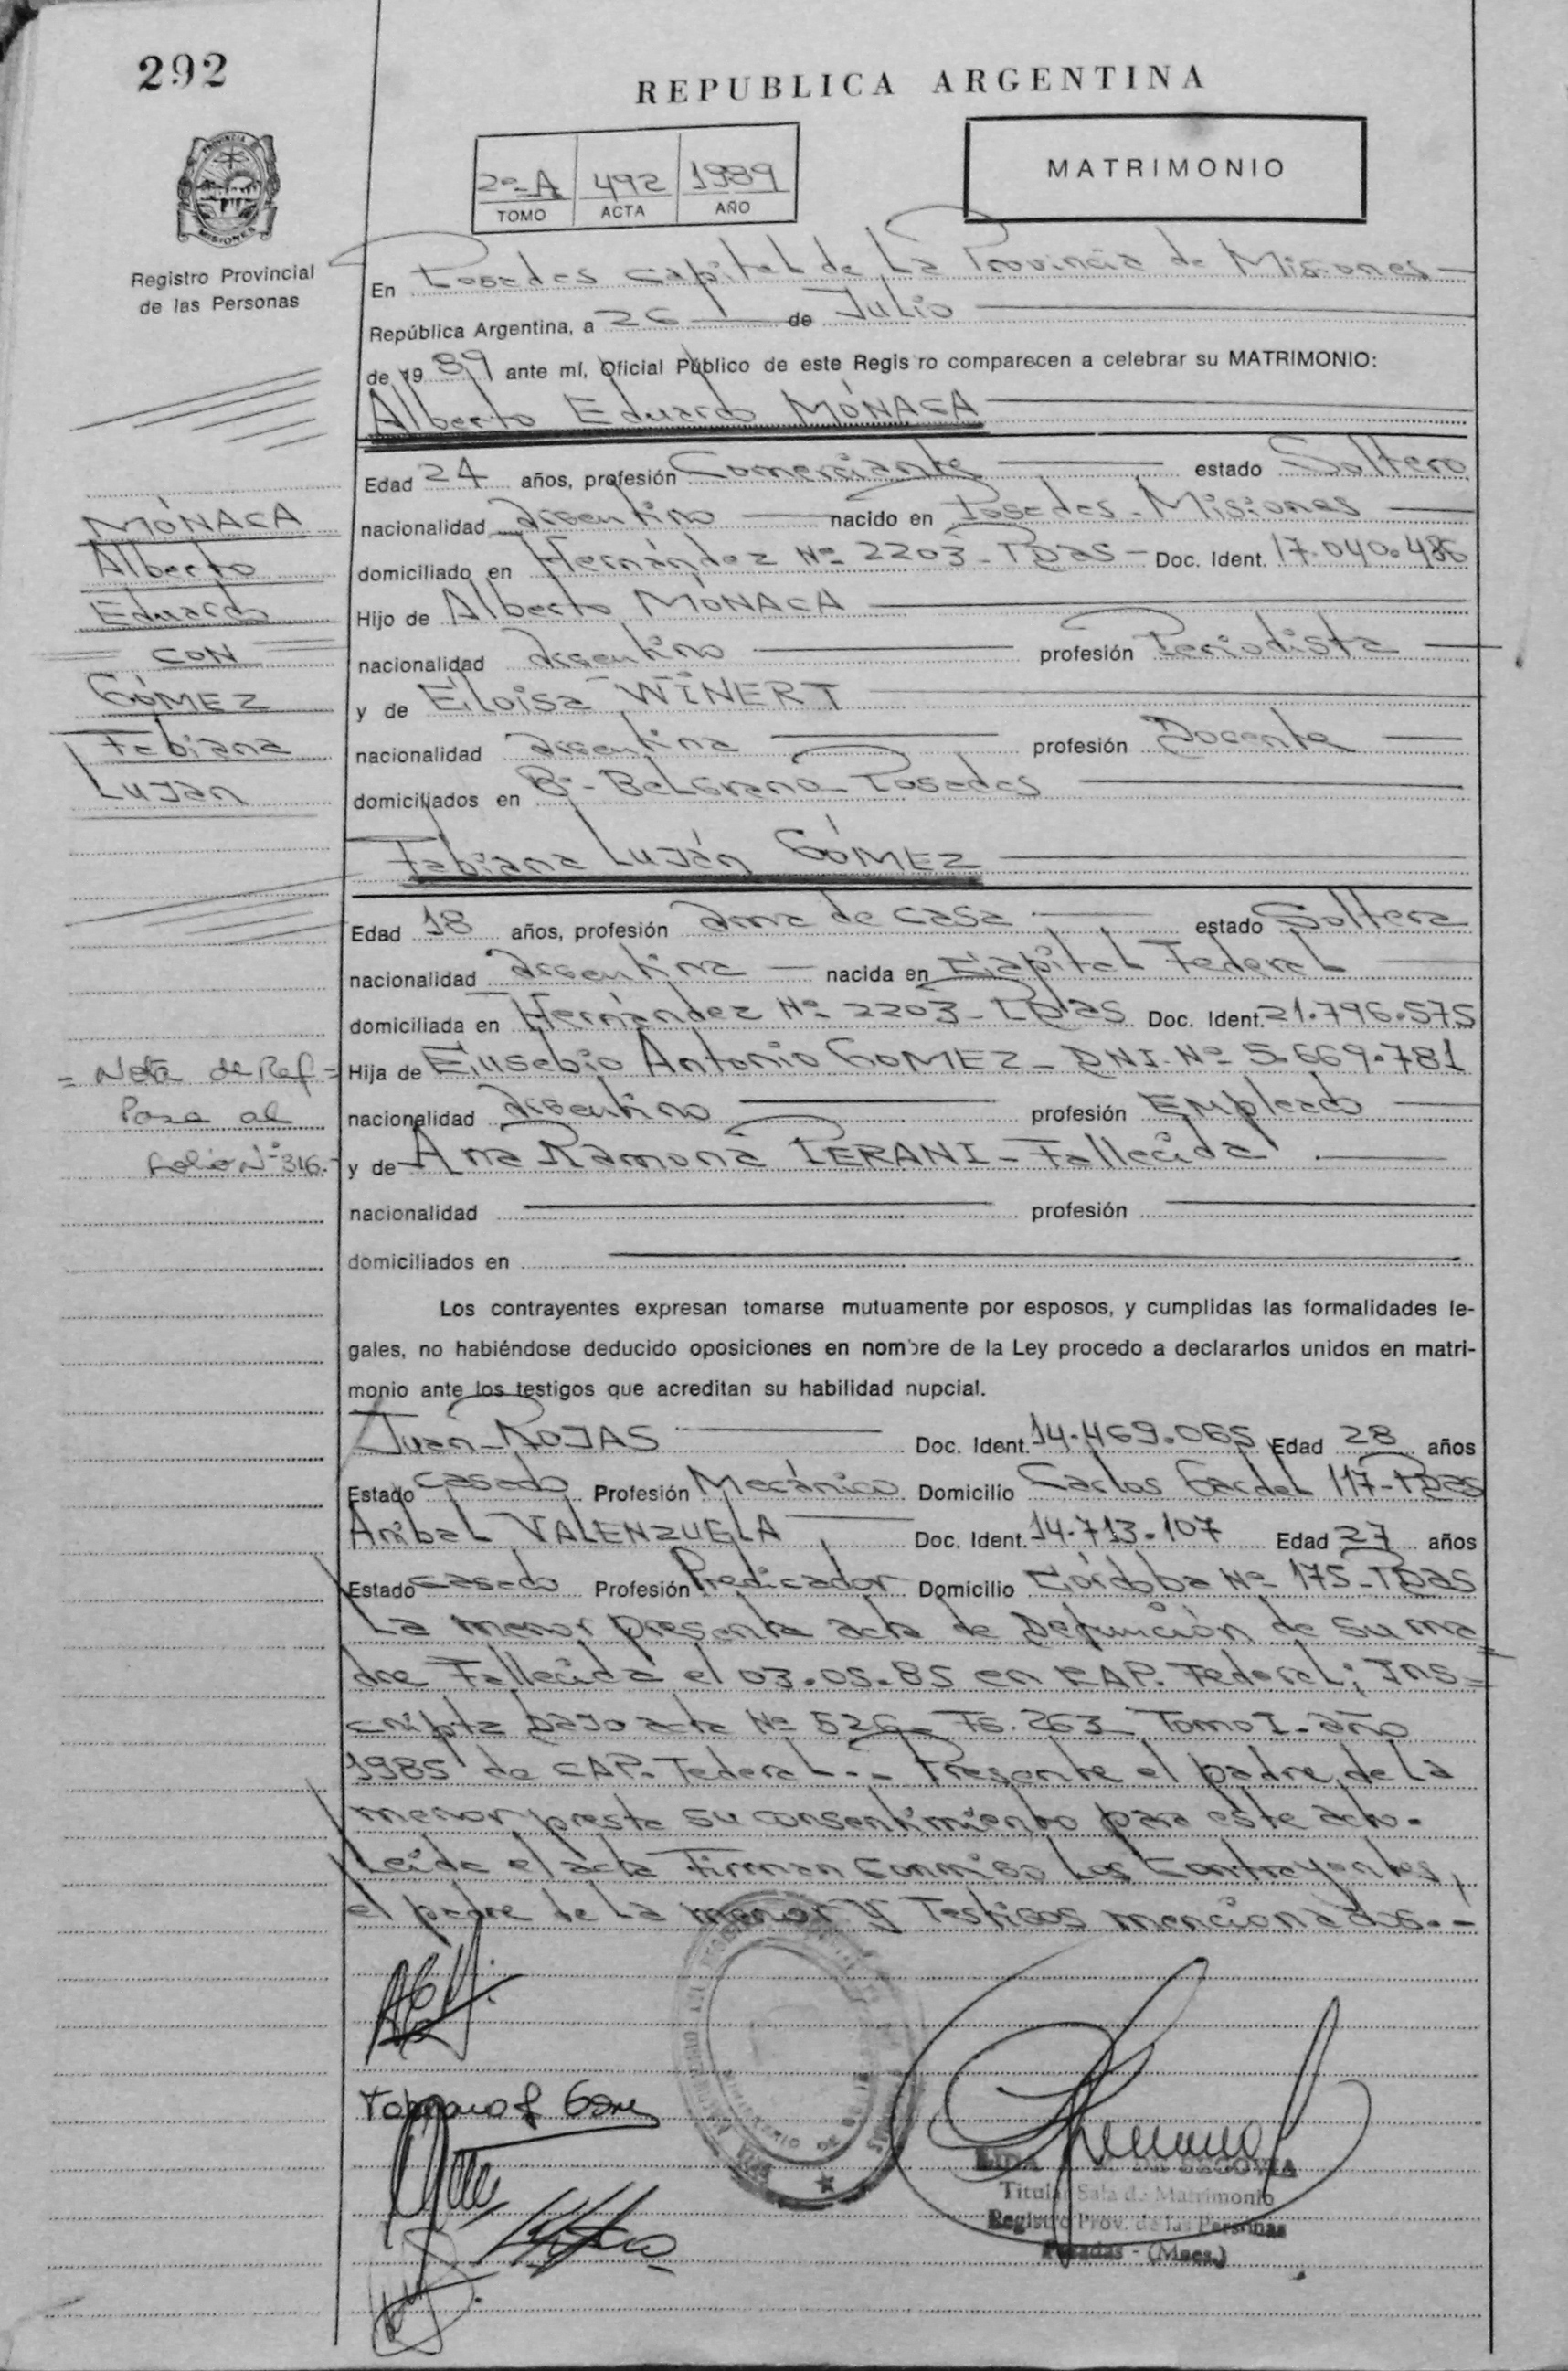 292
REPUBLICA ARGENTINA
2º-A 492 1989
TOMO ACTA AÑO
MATRIMONIO
PROVINCIA DE
MISIONES
Registro Provincial
de las Personas
En Posadas Capital de La Provincia de Misiones
República Argentina, a 26 de Julio
de 1989 ante mí, Oficial Público de este Regis ro comparecen a celebrar su MATRIMONIO:
Alberto Eduardo MÓNACA
Edad 24 años, profesión Comerciante estado Soltero
nacionalidad Argentino nacido en Posadas - Misiones
domiciliado en Hernández Nº 2203 - Pdas - Doc. Ident. 17.040.486
Hijo de Alberto MÓNACA
nacionalidad Argentino profesión Periodista
y de Eloisa WINERT
nacionalidad Argentina profesión Docente
domiciliados en Bº - Belgrano - Posadas
Fabiana Luján GÓMEZ
Edad 18 años, profesión Ama de casa estado Soltera
nacionalidad Argentina nacida en Capital Federal
domiciliada en Hernández Nº 2203 - Pdas Doc. Ident. 21.796.575
Hija de Eusebio Antonio GOMEZ - DNI. Nº 5.669.781
nacionalidad Argentino profesión Empleado
y de Ana Ramona PERANI - Fallecida
nacionalidad profesión
domiciliados en
MÓNACA
Alberto
Eduardo
CON
GÓMEZ
Fabiana
Luján
= Nota de Ref =
Pasa al
folio Nº 316.-
Los contrayentes expresan tomarse mutuamente por esposos, y cumplidas las formalidades le-
gales, no habiéndose deducido oposiciones en nombre de la Ley procedo a declararlos unidos en matri-
monio ante los testigos que acreditan su habilidad nupcial.
Juan ROJAS Doc. Ident. 14.469.065 Edad 28 años
Estado casado Profesión Mecánico Domicilio Carlos Gardel 117 - Pdas
Anibal VALENZUELA Doc. Ident. 14.713.107 Edad 27 años
Estado casado Profesión Predicador Domicilio Córdoba Nº 175 - Pdas
La menor presenta acta de Defunción de su ma=
dre Fallecida el 03.05.85 en CAP. Federal; Ins=
cripta bajo acta Nº 526 - Fs. 263 - Tomo I - año
1985 de CAP. Federal.- Presente el padre de la
menor presta su consentimiento para este acto.
Leida el acta Firman conmigo Los Contrayentes,
el padre de La menor y Testigos mencionados.-
DE SEGOVIA
Titular Sala de Matrimonio
Registro Prov. de las Personas
Posadas - (Mnes.)